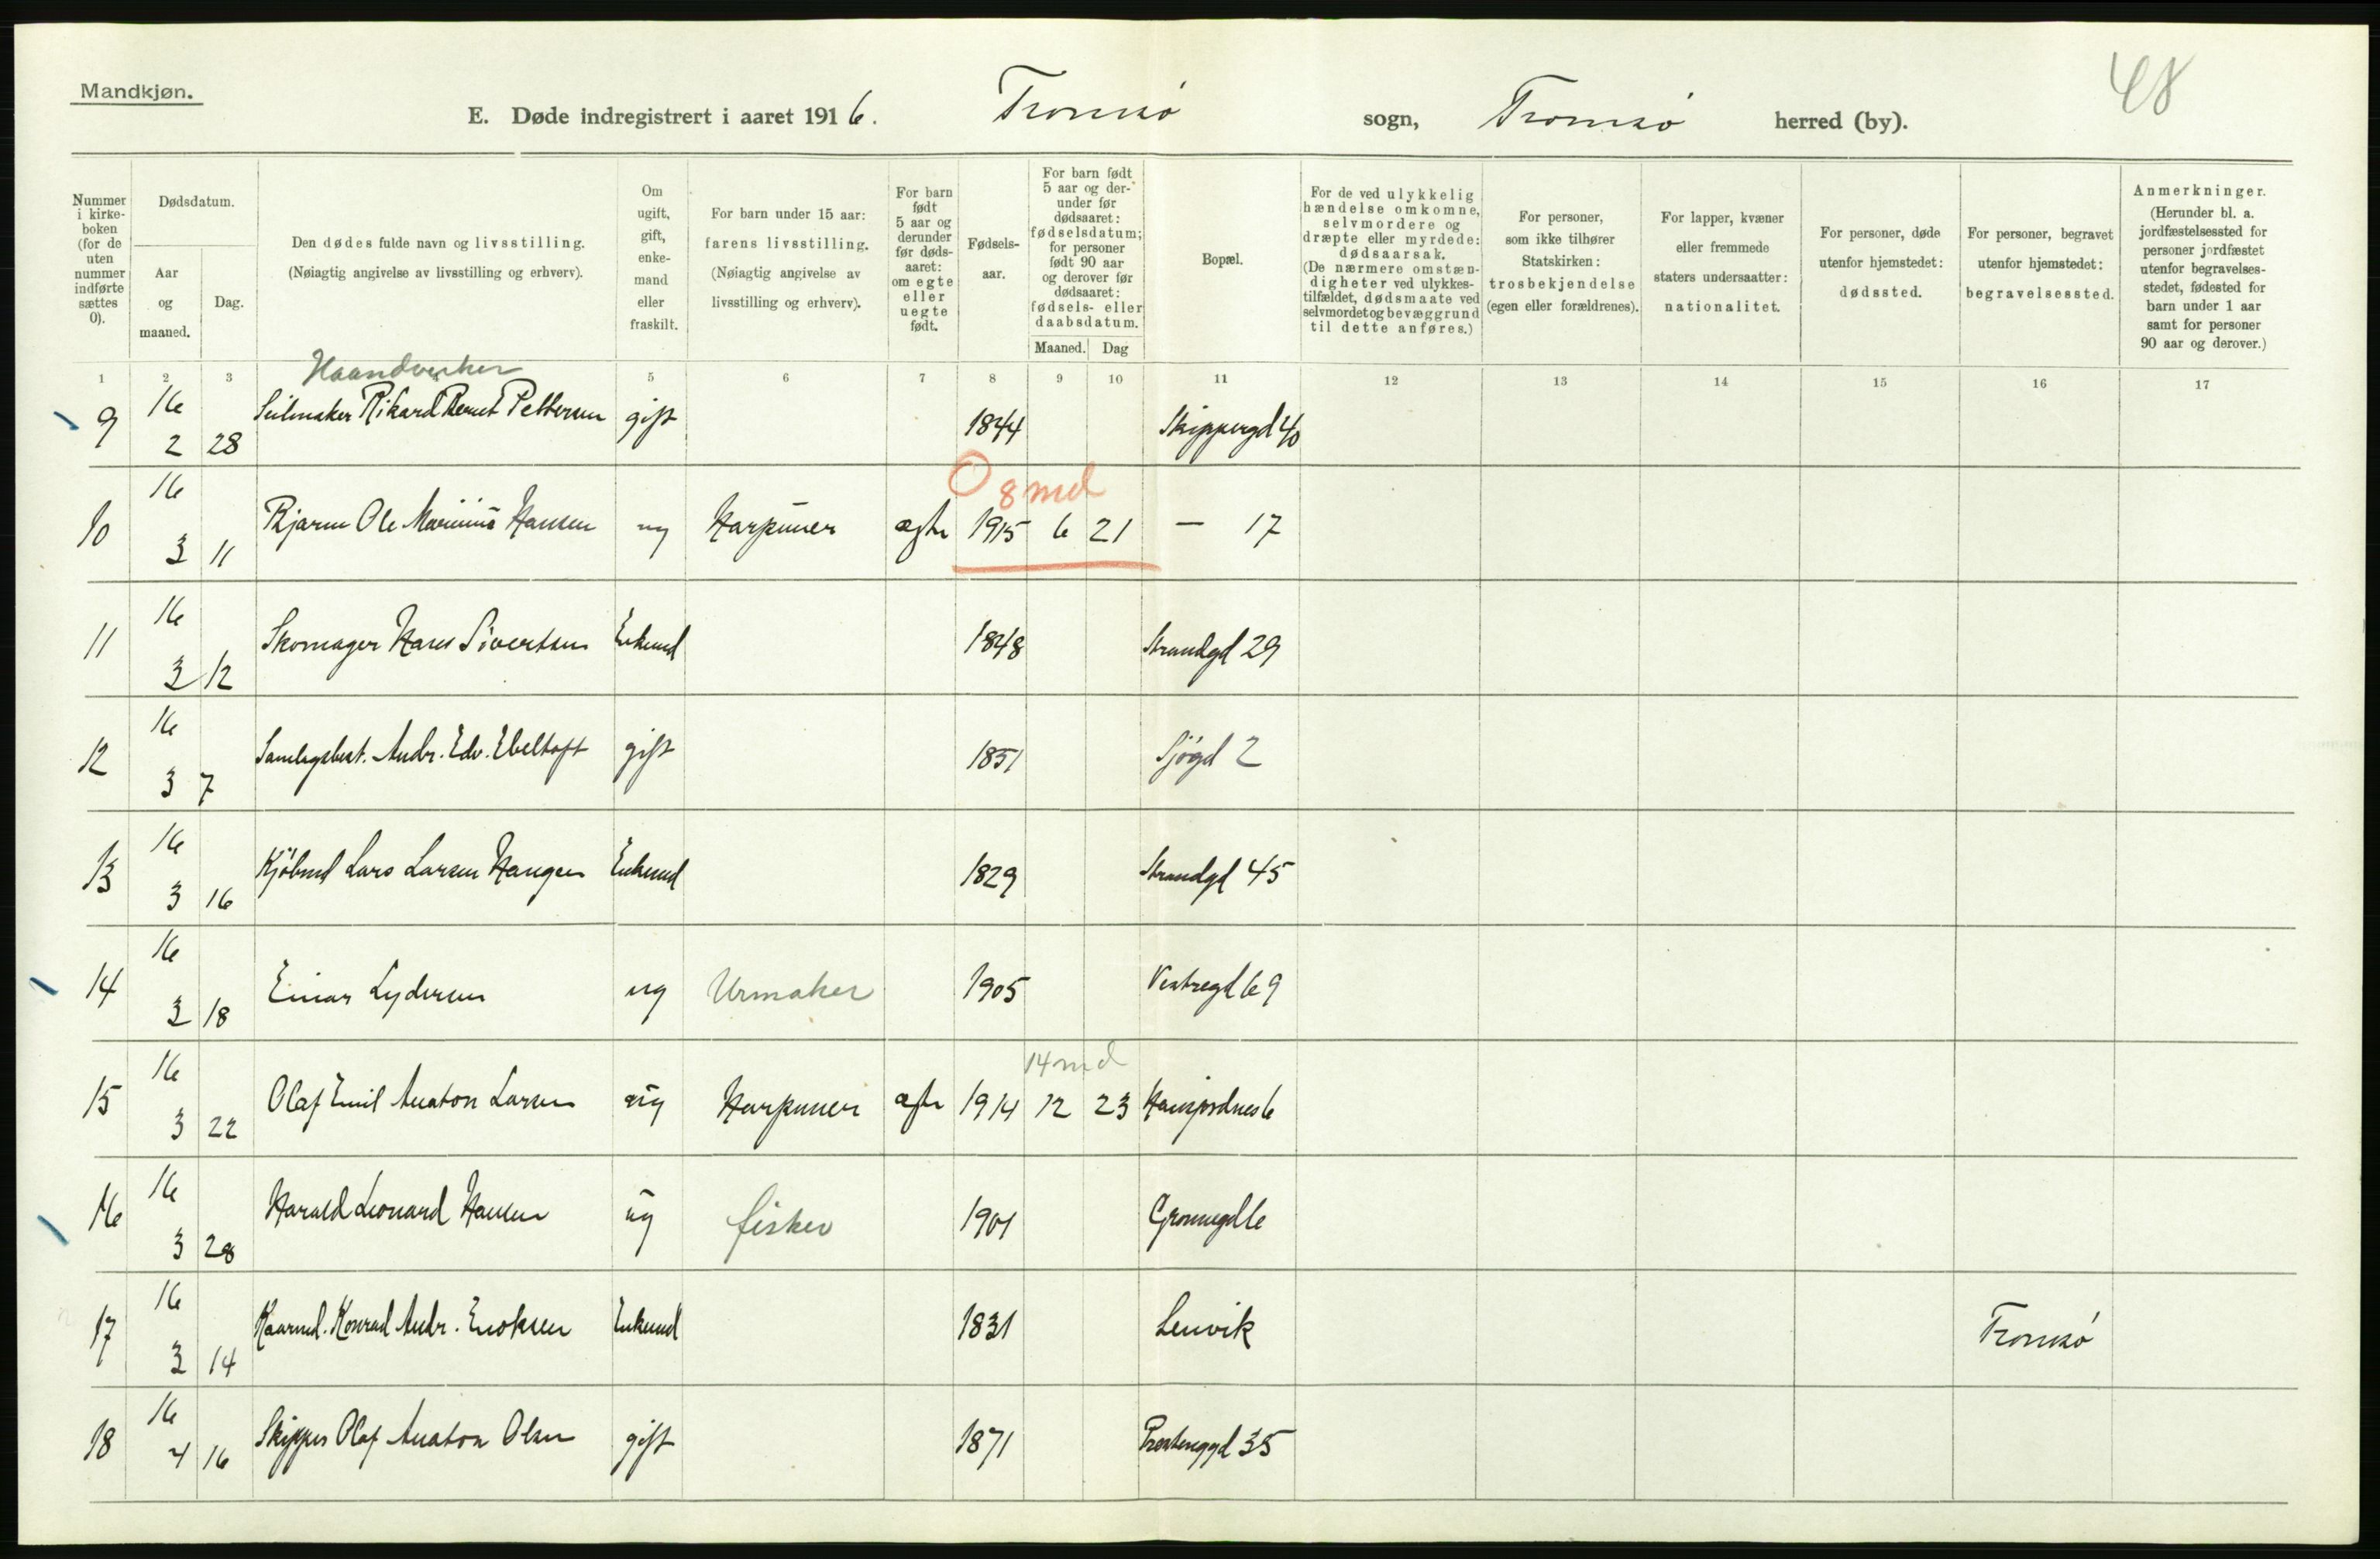 Mandkjøn.
48
E. Døde indregistrert i aaret 1916. Tromsø sogn, Tromsø herred (by).
Nummer i kirke- boken (for de uten nummer indførte sættes 0).
Dødsdatum.
Aar og maaned.
Dag.
Den dødes fulde navn og livsstilling.
(Nøiagtig angivelse av livsstilling og erhverv).
Om ugift, gift, enke- mand eller fraskilt.
For barn under 15 aar: farens livsstilling.
(Nøiagtig angivelse av livsstilling og erhverv).
For barn født 5 aar og derunder før døds- aaret: om egte eller uegte født.
Fødsels- aar.
For barn født 5 aar og der- under før dødsaaret: fødselsdatum; for personer født 90 aar og derover før dødsaaret: fødsels- eller daabsdatum.
Maaned. Dag
Bopæl.
For de ved ulykkelig hændelse omkomne, selvmordere og dræpte eller myrdede: dødsaarsak.
(De nærmere omstæn- digheter ved ulykkes- tilfældet, dødsmaate ved selvmordet og bevæggrund til dette anføres.)
For personer, som ikke tilhører Statskirken: trosbekjendelse (egen eller forældrenes).
For lapper, kvæner eller fremmede staters undersaatter: nationalitet.
For personer, døde utenfor hjemstedet: dødssted.
For personer, begravet utenfor hjemstedet: begravelsessted.
Anmerkninger.
(Herunder bl. a. jordfæstelsessted for personer jordfæstet utenfor begravelses- stedet, fødested for barn under 1 aar samt for personer 90 aar og derover.)
1 2 3 5 6 7 8 9 10 11 12 13 14 15 16 17
Haandverker
9 16 2 28 Seilmaker Rikard Pettersen gift 1844 Skippergd 40
8 md
10 16 3 11 Bjarne Ole Marinius Hansen ug Harpuner ægte 1915 6 21 — 17
11 16 3 12 Skomager Hans Sivertsen Enkemd 1848 Strandgd 29
12 16 3 7 Samlagsbest. Andr. Edv. Ebeltoft gift 1851 Sjøgd 2
13 16 3 16 Kjøbmd Lars Larsen Haugen Enkemd 1829 Strandgd 45
14 16 3 18 Einar Lydersen ug Urmaker 1905 Vestregd 69
14 md
15 16 3 22 Olaf Emil Anaton Larsen ug Harpuner ægte 1914 12 23
16 16 3 28 Harald Leonard Hansen ug fisker 1901 Grønnegd 6
17 16 3 14 Kaarmd. Konrad Andr. Enoksen Enkemd 1831 Lenvik Tromsø
18 16 4 16 Skipper Olaf Anaton Olsen gift 1871 Prestenggd 35